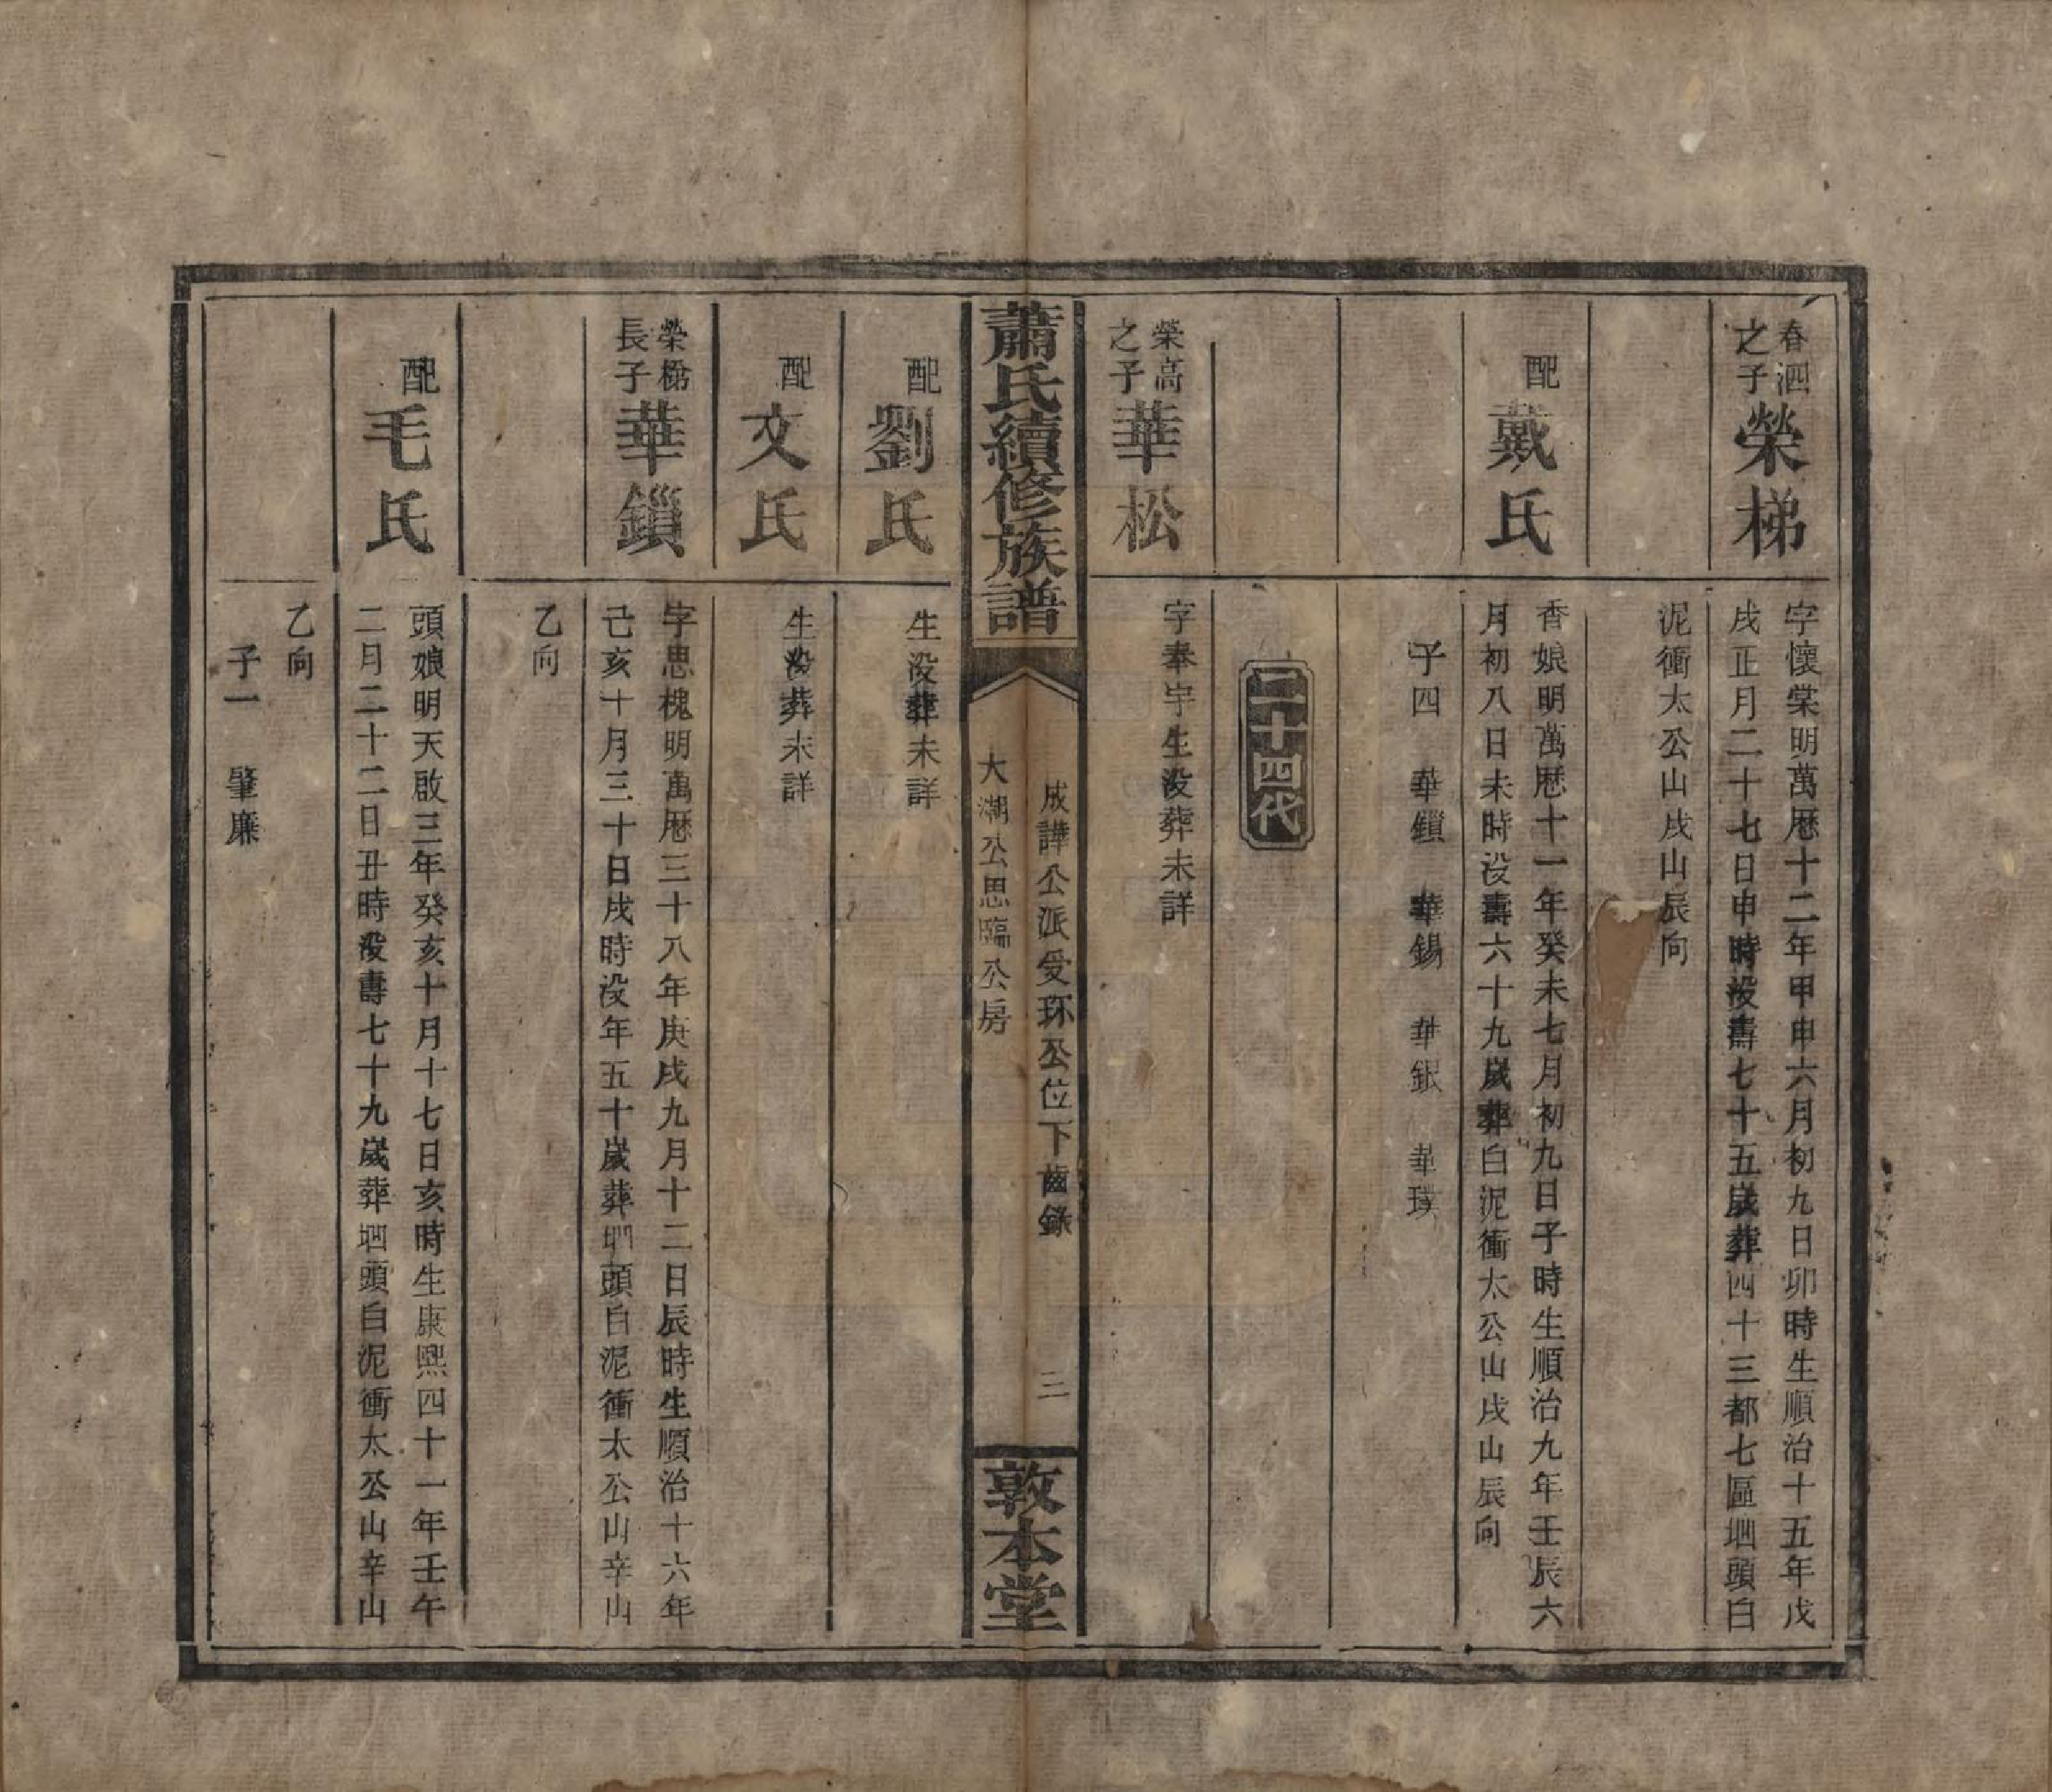 春泗
之子
榮梯
字懷棠明萬曆十二年甲申六月初九日卯時生順治十五年戊
戌正月二十七日申時没壽七十五歲葬四十三都七區𡋾頭白
泥衝太公山戌山辰向
配
戴氏
香娘明萬曆十一年癸未七月初九日子時生順治九年壬辰六
月初八日未時没壽六十九歲葬白泥衝太公山戌山辰向
子四　華鎖　華錫　華銀　華璞
二十四代
榮高
之子
華松
字奉宇生没葬未詳
蕭氏續修族譜
成譁公派受环公位下齒錄
大湖公思臨公房
三
敦本堂
配
劉氏
生没葬未詳
配
文氏
生没葬未詳
榮梯
長子
華鎖
字思槐明萬曆三十八年庚戌九月十二日辰時生順治十六年
己亥十月三十日戌時没年五十歲葬𡋾頭白泥衝太公山辛山
乙向
配
毛氏
頭娘明天啟三年癸亥十月十七日亥時生康熙四十一年壬午
二月二十二日丑時没壽七十九歲葬𡋾頭白泥衝太公山辛山
乙向
子一　肇廉